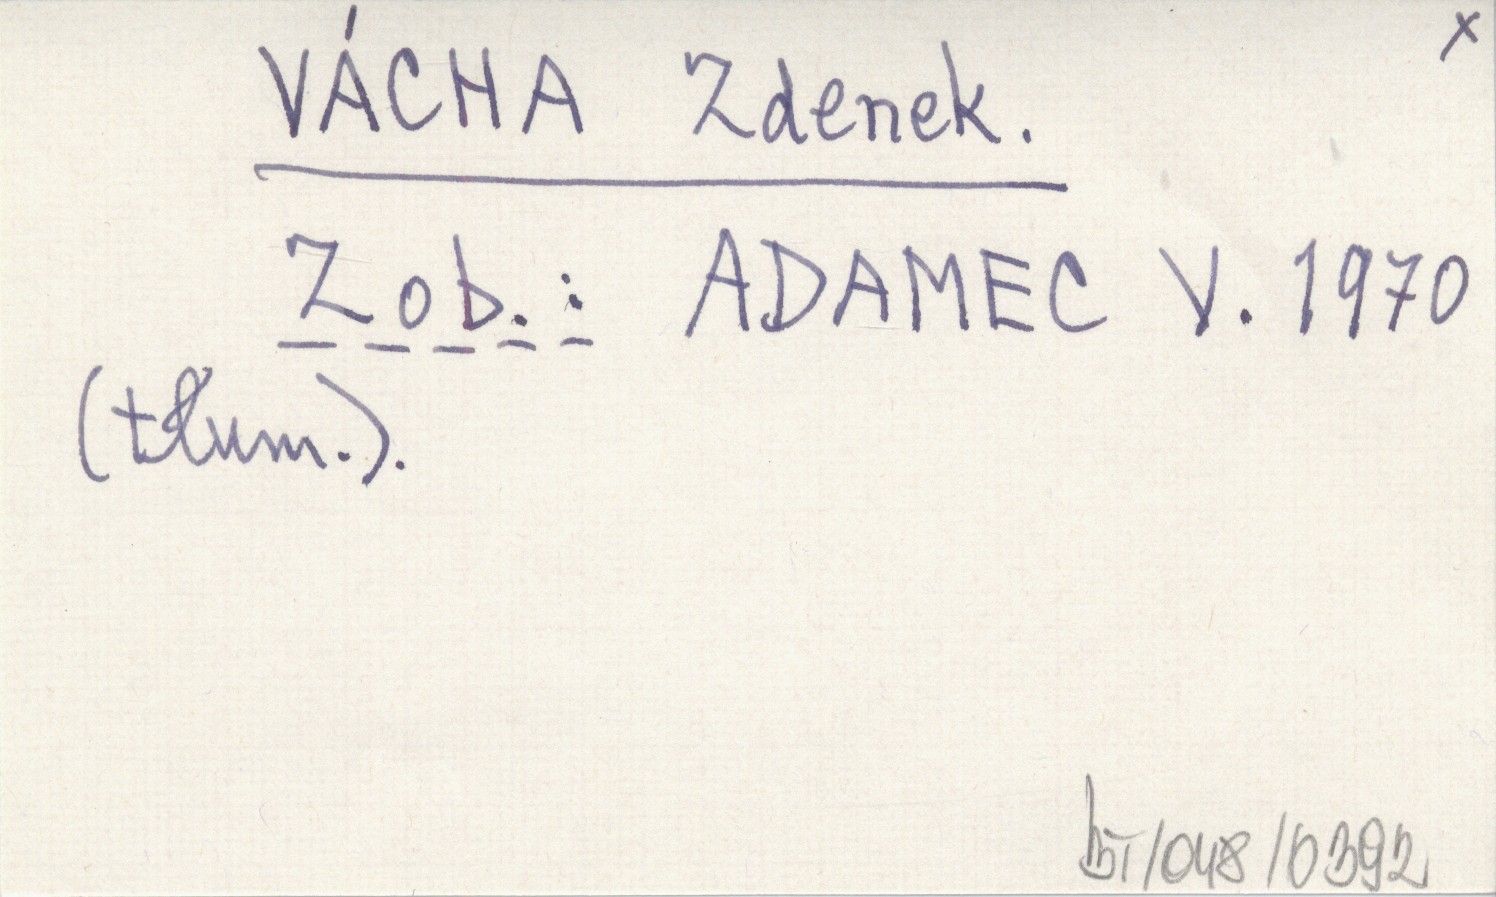 x
VÁCHA Zdenek.
Zob.: ADAMEC V. 1970
(tłum.).
bī/048/0392